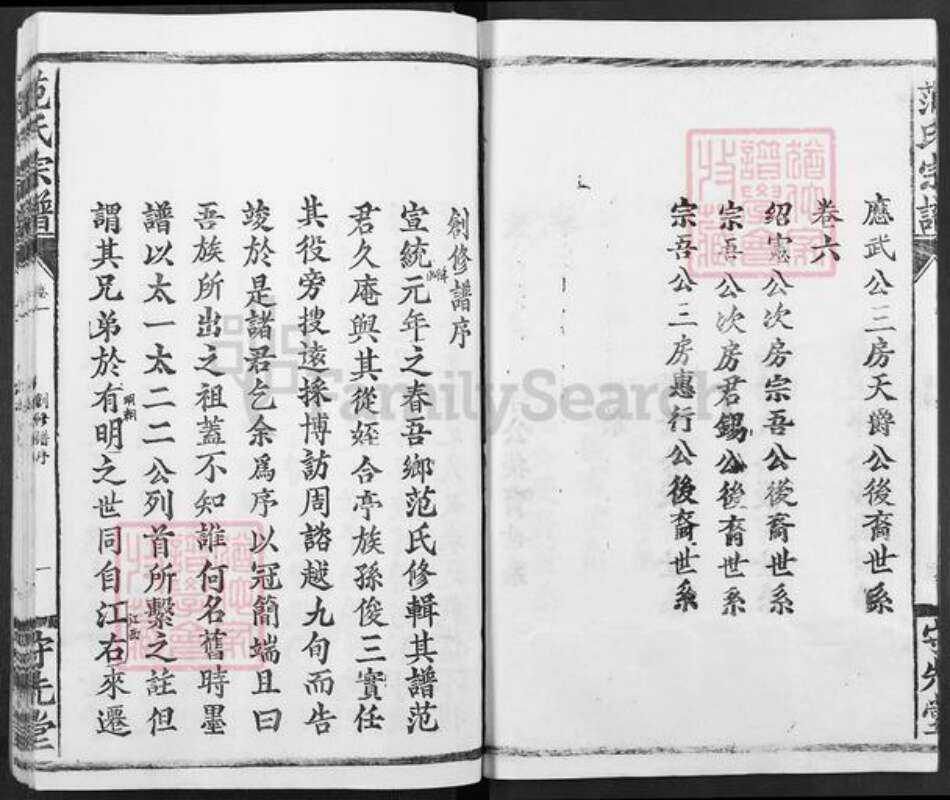 范氏宗譜
應武公三房天爵公後裔世系
卷六
紹憲公次房宗吾公後裔世系
宗吾公次房君錫公後裔世系
宗吾公三房惠行公後裔世系
守先堂
創修譜序
宣統元年之春吾鄉范氏修輯其譜范
君久庵與其從姪合亭族孫俊三實任
其役旁搜遠採博訪周諮越九旬而告
竣於是諸君乞余爲序以冠簡端且曰
吾族所出之祖蓋不知誰何名舊時墨
譜以太一太二二公列首所繫之註但
謂其兄弟於有明之世同自江右來遷
明朝
江西
范氏宗譜
創修譜序
一
守先堂
FamilySearch